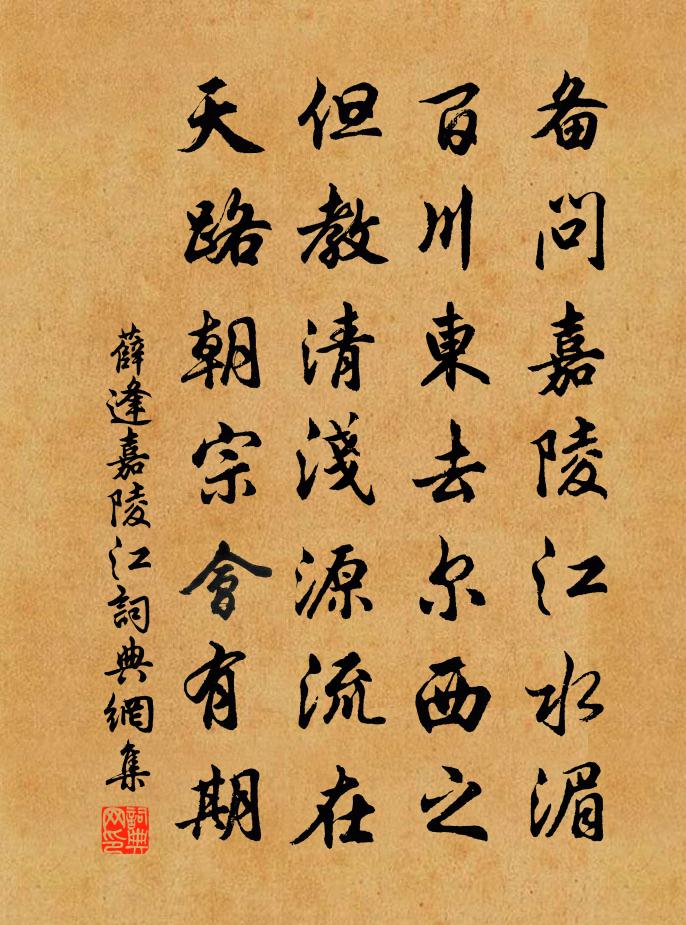 备问嘉陵江水湄
百川東去尔西之
但教清淺源流在
天路朝宗會有期
薛逢嘉陵江詞典網集
詞典网印